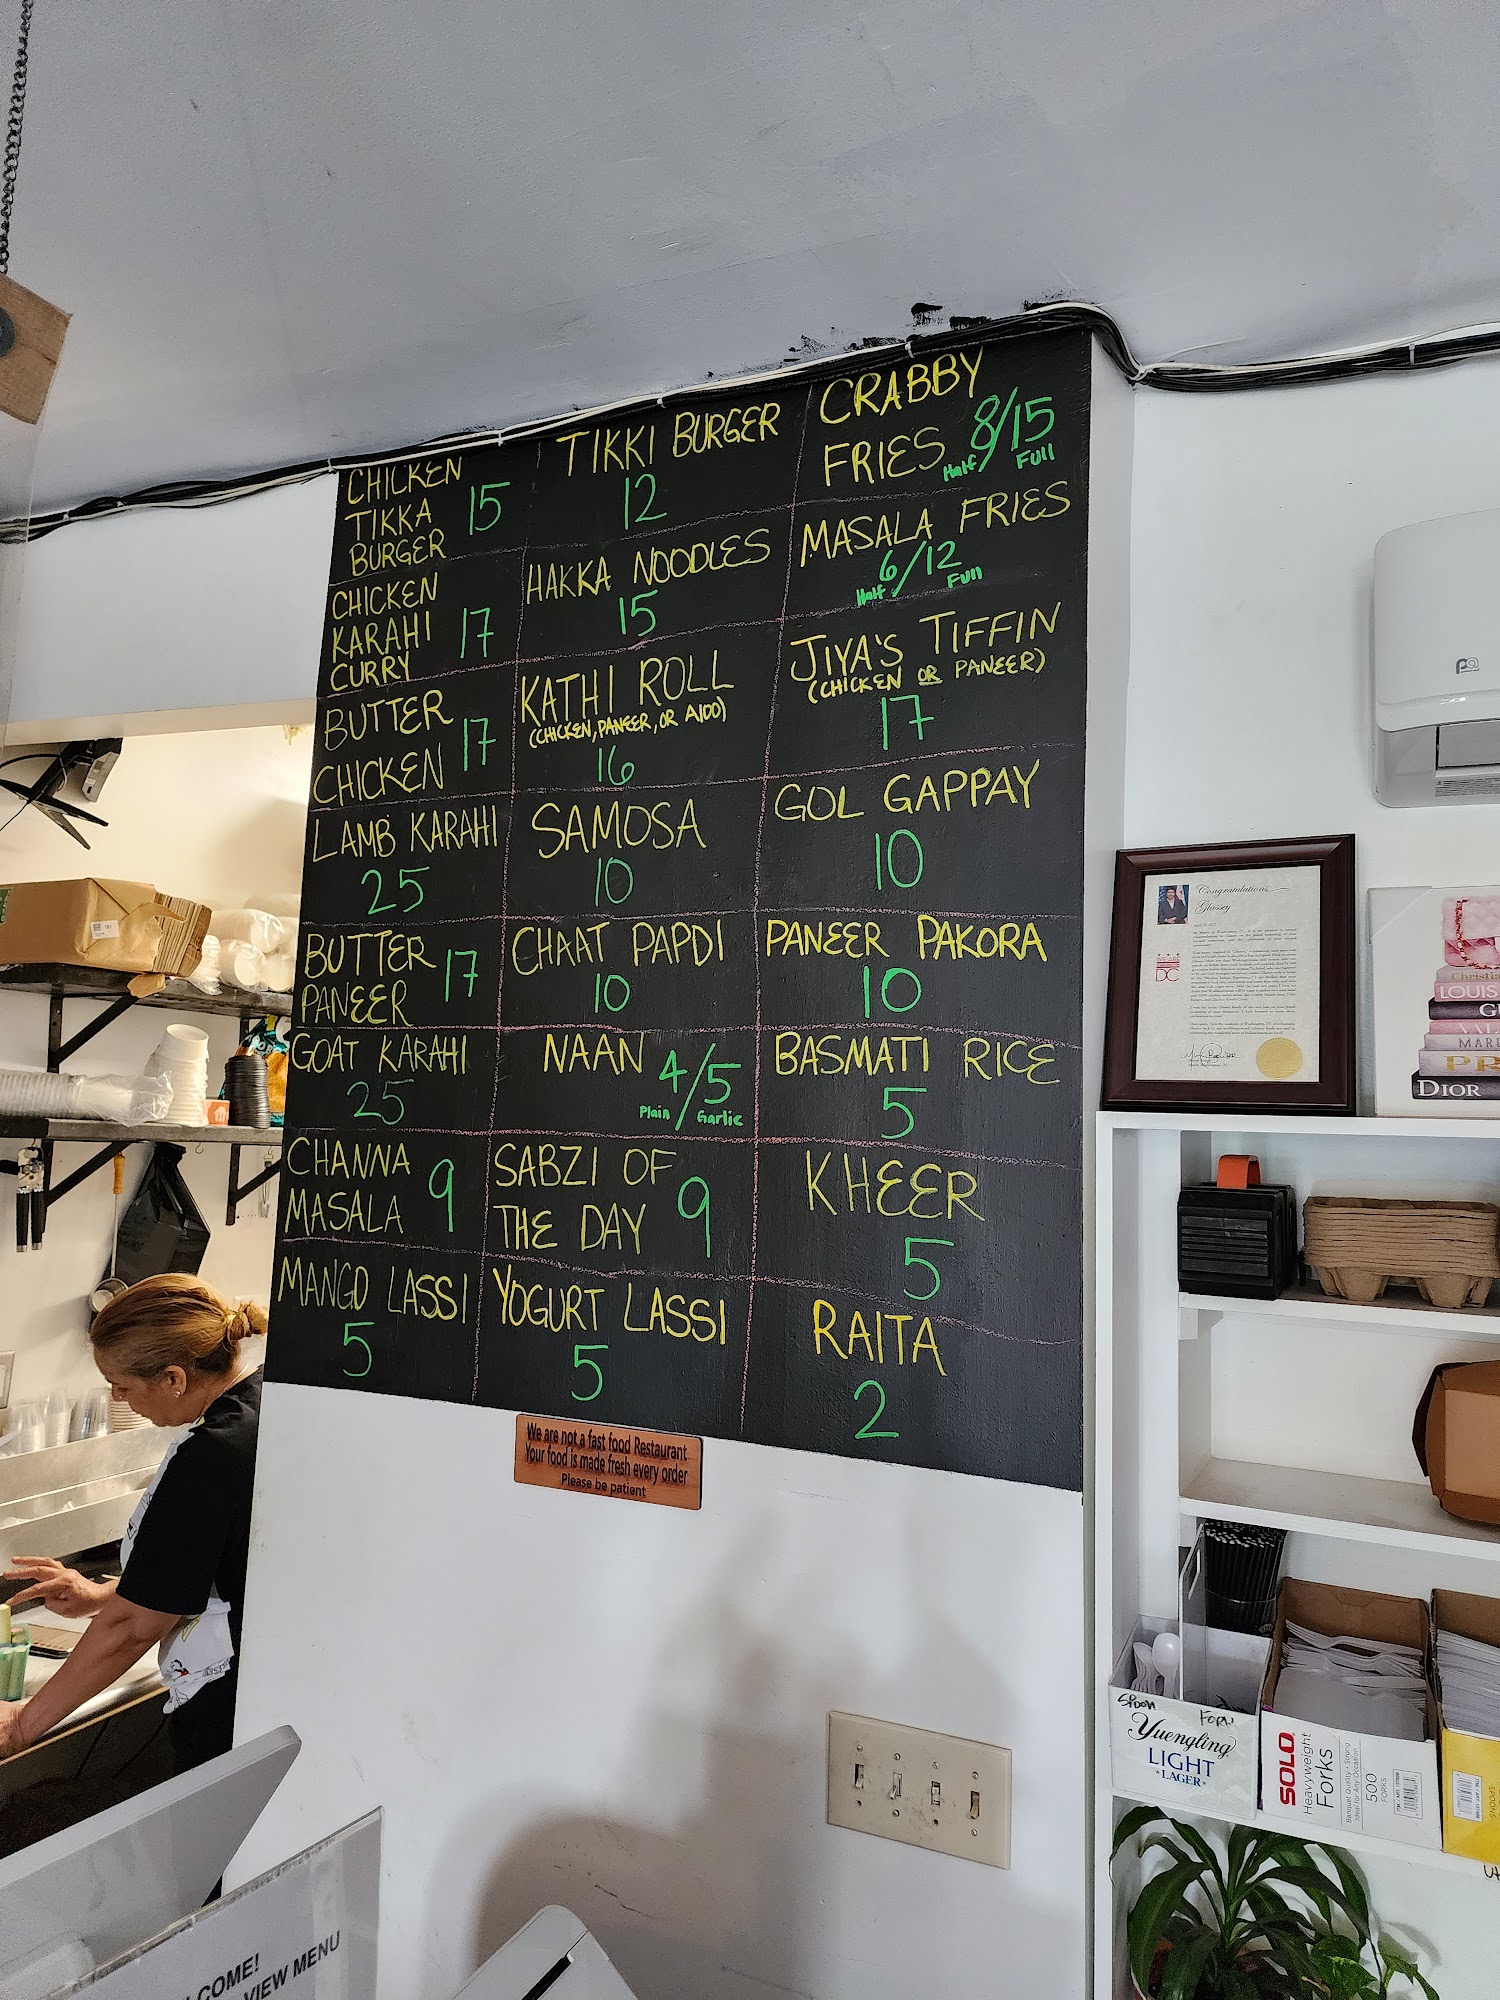 CHICKEN
TIKKA
BURGER
15
TIKKI BURGER
12
CRABBY
FRIES 8/15
Half Full
CHICKEN
KARAHI
CURRY
17
HAKKA NOODLES
15
MASALA FRIES
6/12
Half Full
BUTTER
CHICKEN
17
KATHI ROLL
(CHICKEN, PANEER, OR ALOO)
16
JIYA'S TIFFIN
(CHICKEN OR PANEER)
17
LAMB KARAHI
25
SAMOSA
10
GOL GAPPAY
10
BUTTER
PANEER
17
CHAAT PAPDI
10
PANEER PAKORA
10
GOAT KARAHI
25
NAAN 4/5
Plain Garlic
BASMATI RICE
5
CHANNA
MASALA
9
SABZI OF
THE DAY
9
KHEER
5
MANGO LASSI
5
YOGURT LASSI
5
RAITA
2
We are not a fast food Restaurant
Your food is made fresh every order
Please be patient
Congratulations
Glassey
WE ARE
DC
LOUIS
DIOR
SPOON
Yuengling
LIGHT
LAGER
SOLO
Heavyweight
Forks
500
FORKS
SPOONS
COME!
VIEW MENU